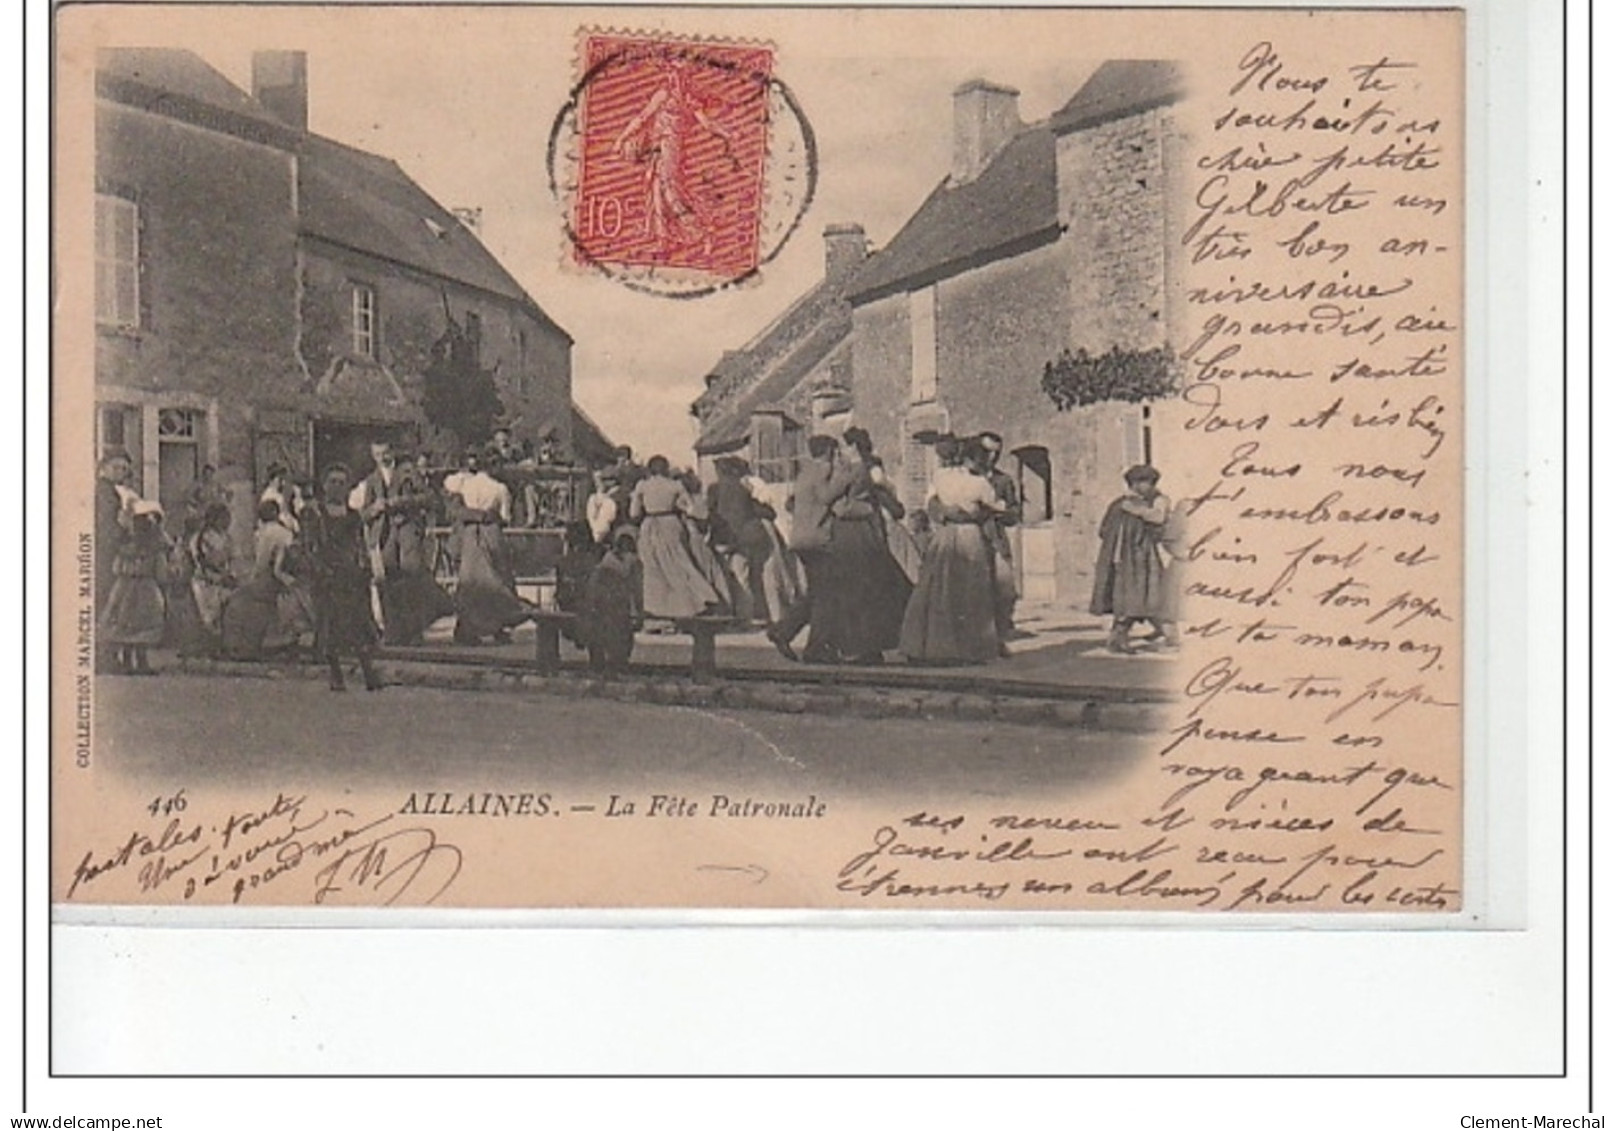 Nous te
souhaitons
chère petite
Gilberte un
très bon an-
niversaire
grandis, aie
bonne santé
dors et ris bien
Tous nous
t'embrassons
bien fort et
aussi ton papa
et ta maman.
Que ton papa
pense en
voyageant que
ses neveu et nièces de
Janville ont reçu pour
étrennes un album pour les cartes
postales.
Une toute
dévouée
grand mère
10c
COLLECTION MARCEL MARRON
446
ALLAINES. — La Fête Patronale
delcampe.net
Clement-Marechal